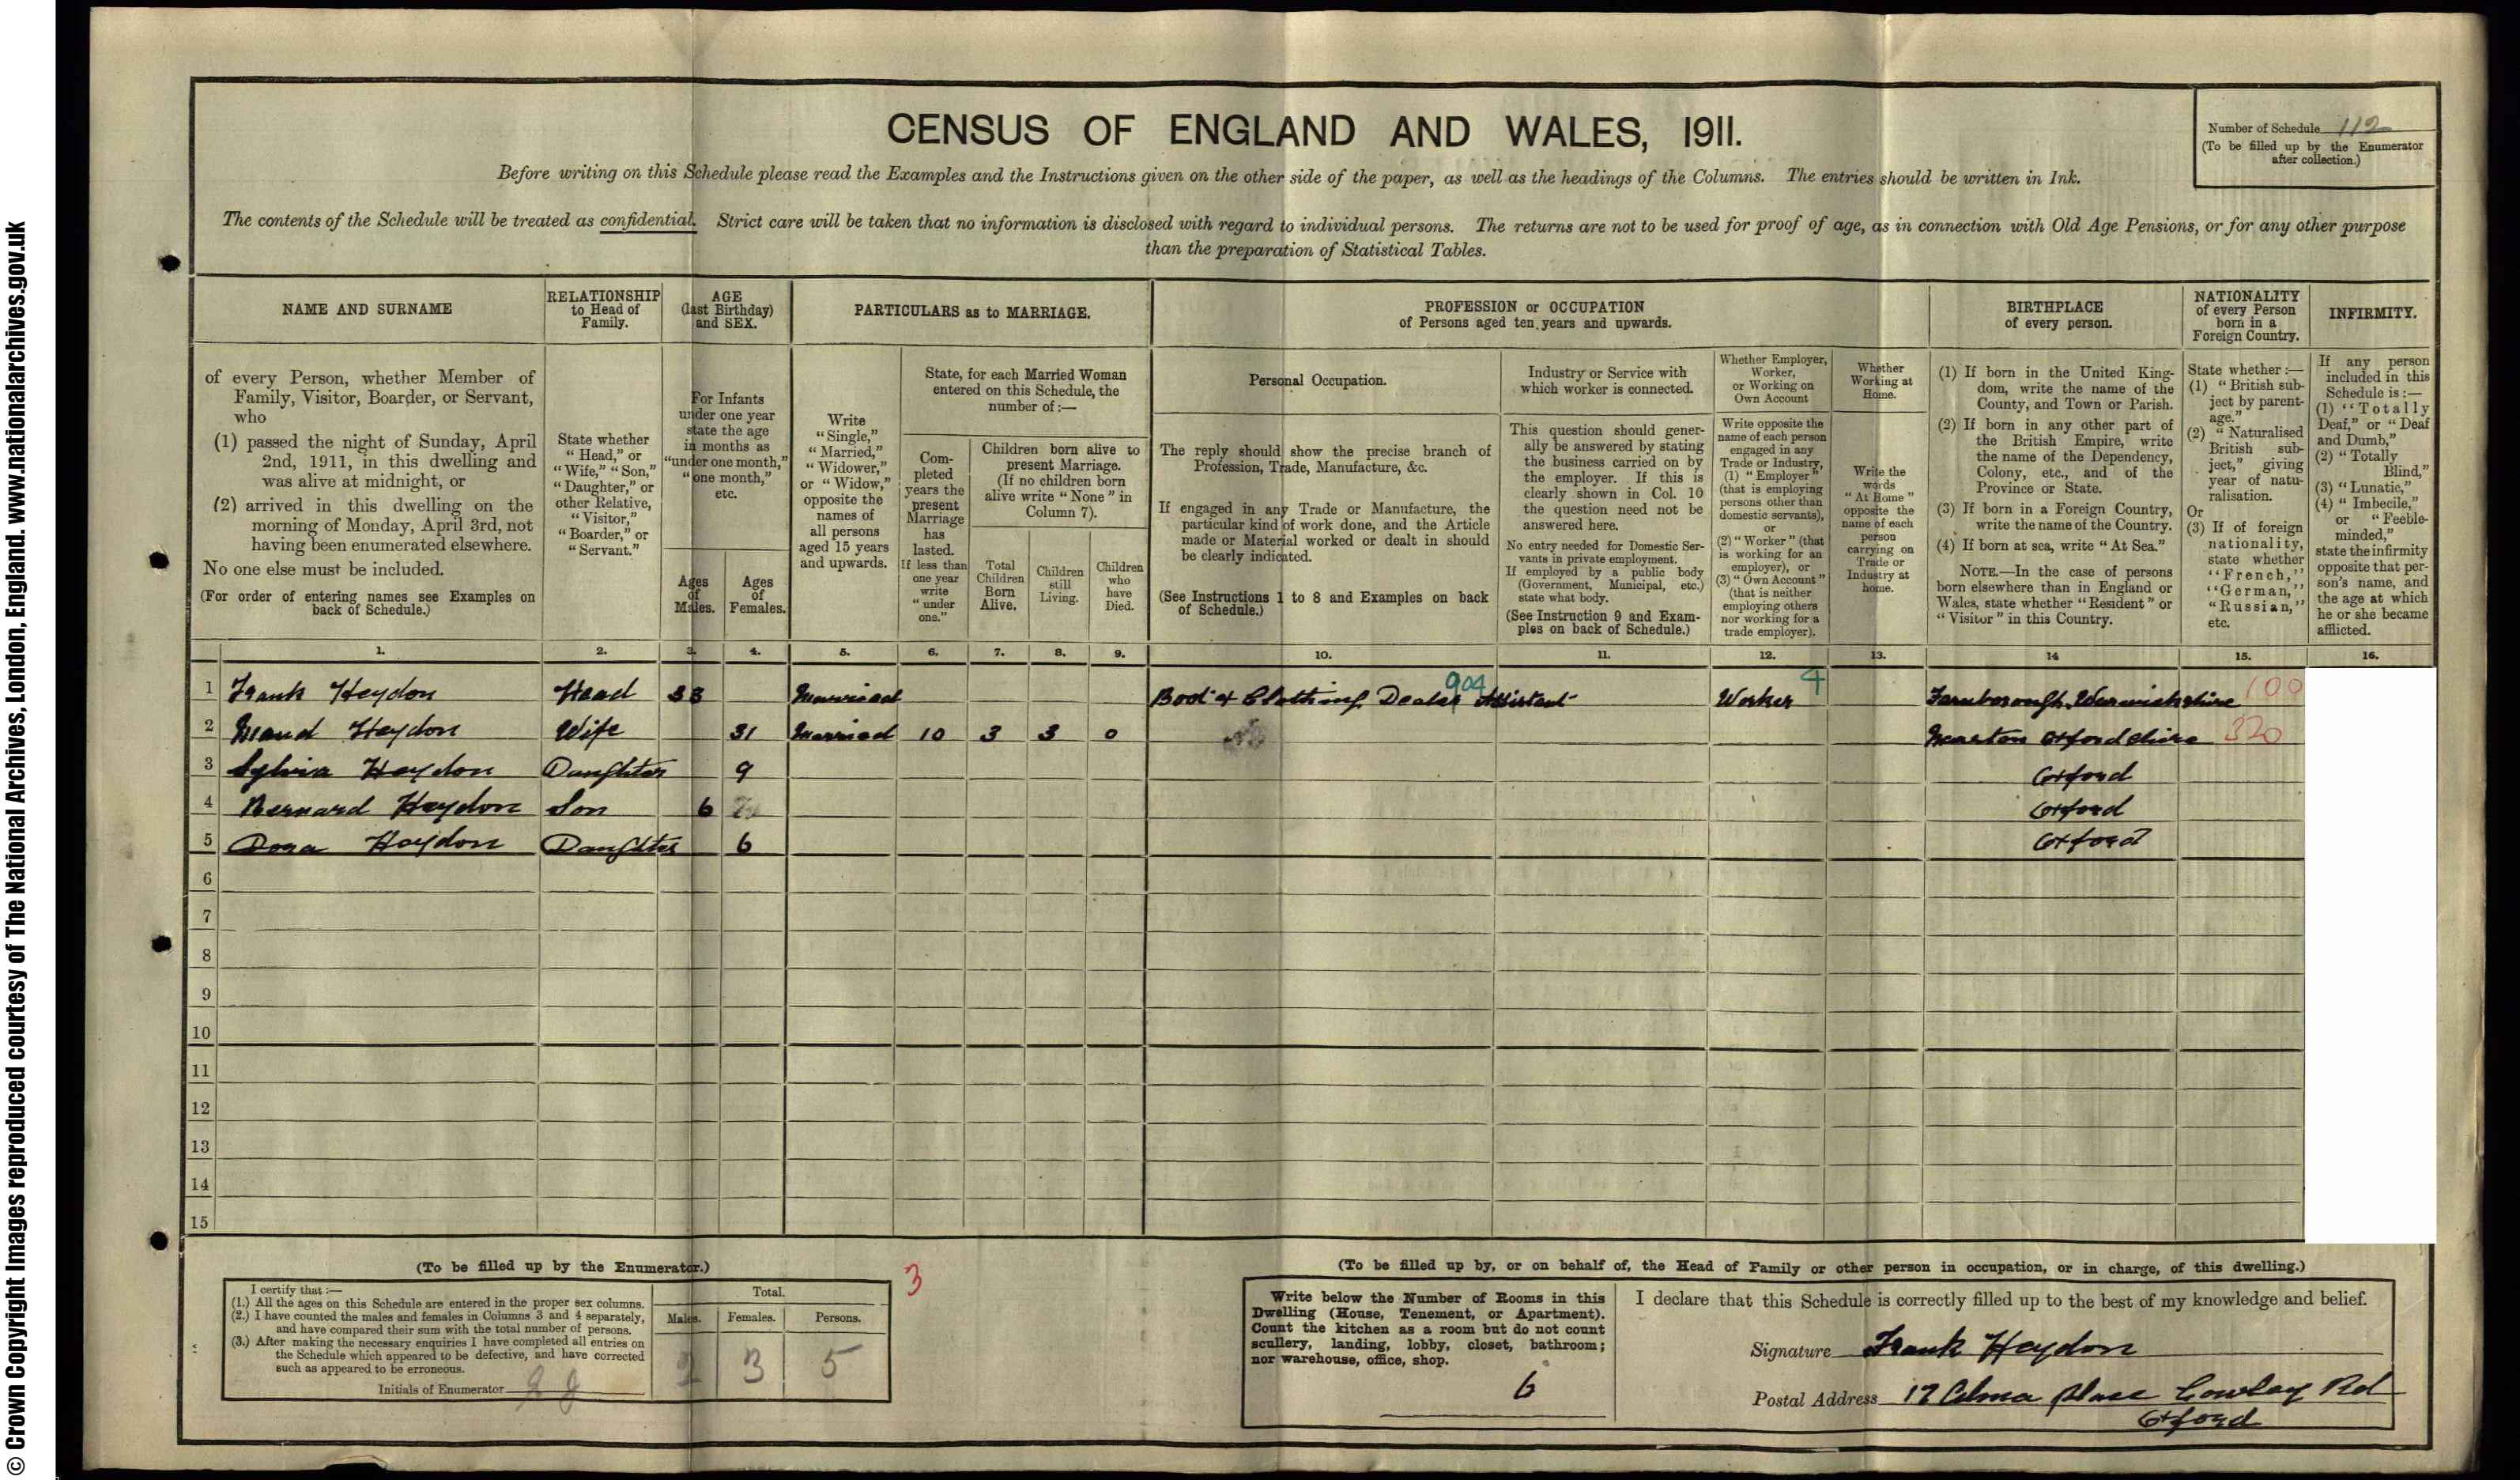 © Crown Copyright Images reproduced courtesy of The National Archives, London, England. www.nationalarchives.gov.uk
CENSUS OF ENGLAND AND WALES, 1911.
Number of Schedule 112
(To be filled up by the Enumerator
after collection.)
Before writing on this Schedule please read the Examples and the Instructions given on the other side of the paper, as well as the headings of the Columns. The entries should be written in Ink.
The contents of the Schedule will be treated as confidential. Strict care will be taken that no information is disclosed with regard to individual persons. The returns are not to be used for proof of age, as in connection with Old Age Pensions, or for any other purpose
than the preparation of Statistical Tables.
NAME AND SURNAME
of every Person, whether Member of
Family, Visitor, Boarder, or Servant,
who
(1) passed the night of Sunday, April
2nd, 1911, in this dwelling and
was alive at midnight, or
(2) arrived in this dwelling on the
morning of Monday, April 3rd, not
having been enumerated elsewhere.
No one else must be included.
(For order of entering names see Examples on
back of Schedule.)
RELATIONSHIP
to Head of
Family.
State whether
"Head," or
"Wife," "Son,"
"Daughter," or
other Relative,
"Visitor,"
"Boarder," or
"Servant."
AGE
(last Birthday)
and SEX.
For Infants
under one year
state the age
in months as
"under one month,"
"one month,"
etc.
Ages
of
Males.
Ages
of
Females.
PARTICULARS as to MARRIAGE.
Write
"Single,"
"Married,"
"Widower,"
or "Widow,"
opposite the
names of
all persons
aged 15 years
and upwards.
State, for each Married Woman
entered on this Schedule, the
number of:—
Com-
pleted
years the
present
Marriage
has
lasted.
If less than
one year
write
"under
one."
Children born alive to
present Marriage.
(If no children born
alive write "None" in
Column 7).
Total
Children
Born
Alive.
Children
still
Living.
Children
who
have
Died.
PROFESSION or OCCUPATION
of Persons aged ten years and upwards.
Personal Occupation.
The reply should show the precise branch of
Profession, Trade, Manufacture, &c.
If engaged in any Trade or Manufacture, the
particular kind of work done, and the Article
made or Material worked or dealt in should
be clearly indicated.
(See Instructions 1 to 8 and Examples on back
of Schedule.)
Industry or Service with
which worker is connected.
This question should gener-
ally be answered by stating
the business carried on by
the employer. If this is
clearly shown in Col. 10
the question need not be
answered here.
No entry needed for Domestic Ser-
vants in private employment.
If employed by a public body
(Government, Municipal, etc.)
state what body.
(See Instruction 9 and Exam-
ples on back of Schedule.)
Whether Employer,
Worker,
or Working on
Own Account
Write opposite the
name of each person
engaged in any
Trade or Industry,
(1) "Employer"
(that is employing
persons other than
domestic servants),
or
(2) "Worker" (that
is working for an
employer), or
(3) "Own Account"
(that is neither
employing others
nor working for a
trade employer).
Whether
Working at
Home.
Write the
words
"At Home"
opposite the
name of each
person
carrying on
Trade or
Industry at
home.
BIRTHPLACE
of every person.
(1) If born in the United King-
dom, write the name of the
County, and Town or Parish.
(2) If born in any other part of
the British Empire, write
the name of the Dependency,
Colony, etc., and of the
Province or State.
(3) If born in a Foreign Country,
write the name of the Country.
(4) If born at sea, write "At Sea."
NOTE.—In the case of persons
born elsewhere than in England or
Wales, state whether "Resident" or
"Visitor" in this Country.
NATIONALITY
of every Person
born in a
Foreign Country.
State whether:—
(1) "British sub-
ject by parent-
age."
(2) "Naturalised
British sub-
ject," giving
year of natu-
ralisation.
Or
(3) If of foreign
nationality,
state whether
"French,"
"German,"
"Russian,"
etc.
INFIRMITY.
If any person
included in this
Schedule is:—
(1) "Totally
Deaf," or "Deaf
and Dumb,"
(2) "Totally
Blind,"
(3) "Lunatic,"
(4) "Imbecile,"
or "Feeble-
minded,"
state the infirmity
opposite that per-
son's name, and
the age at which
he or she became
afflicted.
1. 2. 3. 4. 5. 6. 7. 8. 9. 10. 11. 12. 13. 14 15. 16.
1 Frank Heydon Head 33 Married Boot & Clothing Dealer Assistant 904 Worker 4 Farnborough Warwickshire 100
2 Maud Heydon Wife 31 Married 10 3 3 0 Marston Oxfordshire 320
3 Sylvia Heydon Daughter 9 Oxford
4 Bernard Heydon Son 6 Oxford
5 Dora Heydon Daughter 6 Oxford
6
7
8
9
10
11
12
13
14
15
(To be filled up by the Enumerator.)
I certify that:—
(1.) All the ages on this Schedule are entered in the proper sex columns.
(2.) I have counted the males and females in Columns 3 and 4 separately,
and have compared their sum with the total number of persons.
(3.) After making the necessary enquiries I have completed all entries on
the Schedule which appeared to be defective, and have corrected
such as appeared to be erroneous.
Initials of Enumerator
Total.
Males. Females. Persons.
2 3 5
3
(To be filled up by, or on behalf of, the Head of Family or other person in occupation, or in charge, of this dwelling.)
Write below the Number of Rooms in this
Dwelling (House, Tenement, or Apartment).
Count the kitchen as a room but do not count
scullery, landing, lobby, closet, bathroom;
nor warehouse, office, shop.
6
I declare that this Schedule is correctly filled up to the best of my knowledge and belief.
Signature Frank Heydon
Postal Address 17 Alma Place Cowley Rd
Oxford